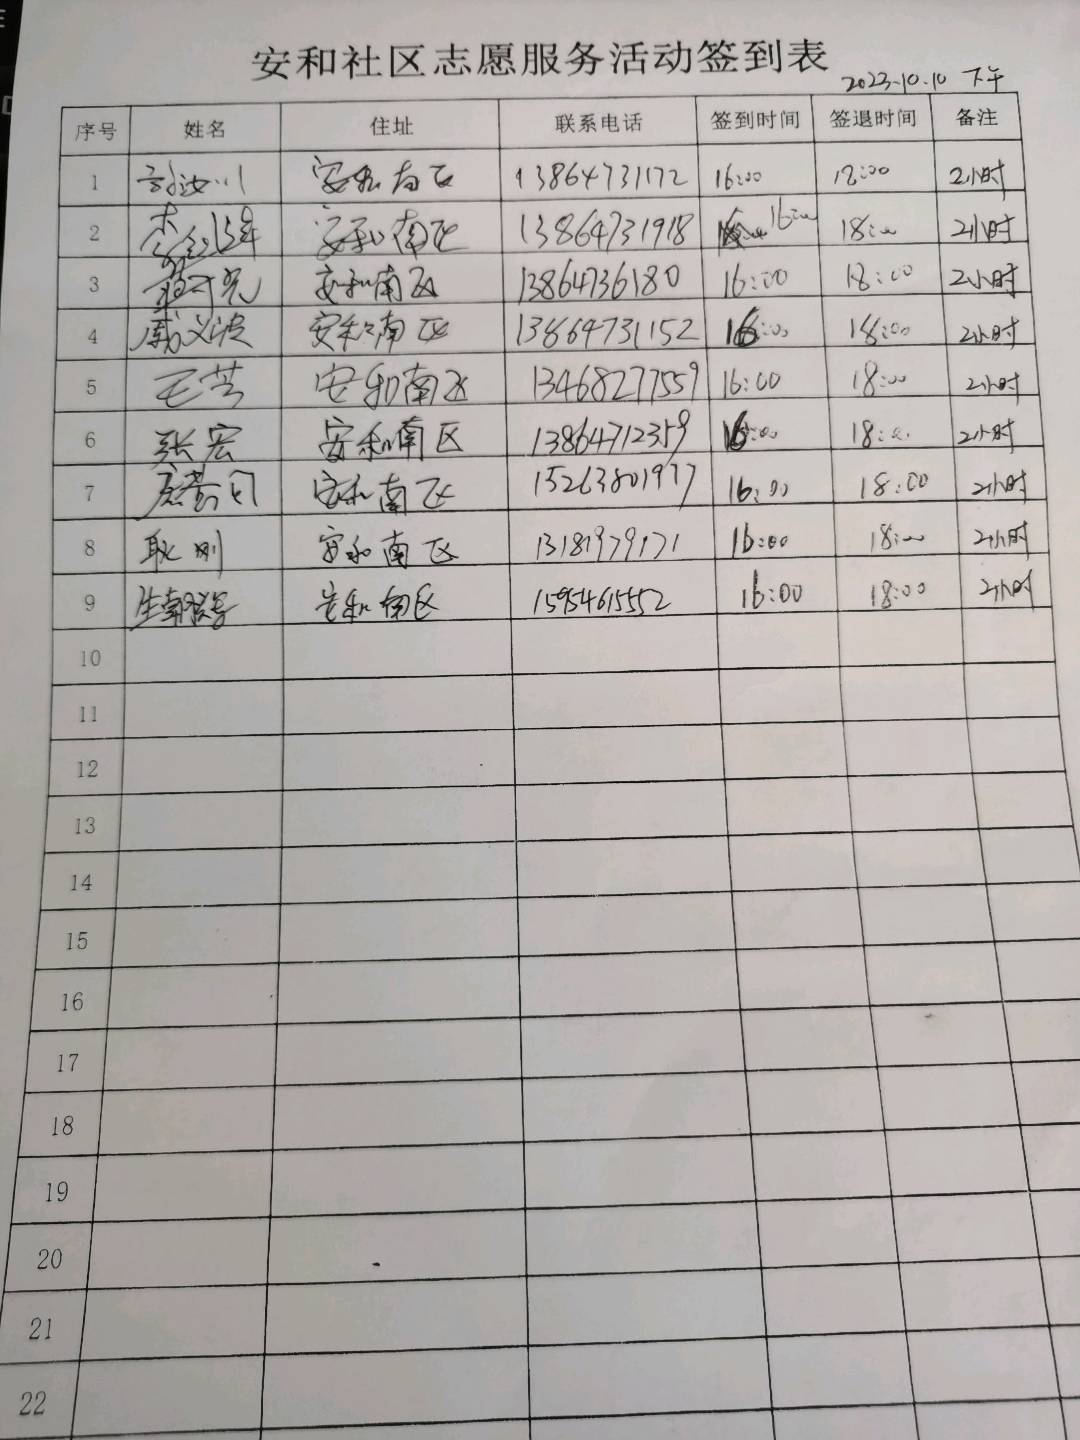 安和社区志愿服务活动签到表
2023.10.10 下午
序号 姓名 住址 联系电话 签到时间 签退时间 备注
1 安和南区 13864731172 16:00 18:00 2小时
2 安和南区 13864731918 16:00 18:00 2小时
3 安和南区 13864736180 16:00 18:00 2小时
4 安和南区 13864731152 16:00 18:00 2小时
5 王芳 安和南区 13468277559 16:00 18:00 2小时
6 张宏 安和南区 13864712359 16:00 18:00 2小时
7 安和南区 15263801977 16:00 18:00 2小时
8 耿刚 安和南区 13181979171 16:00 18:00 2小时
9 安和南区 15954615552 16:00 18:00 2小时
10
11
12
13
14
15
16
17
18
19
20
21
22